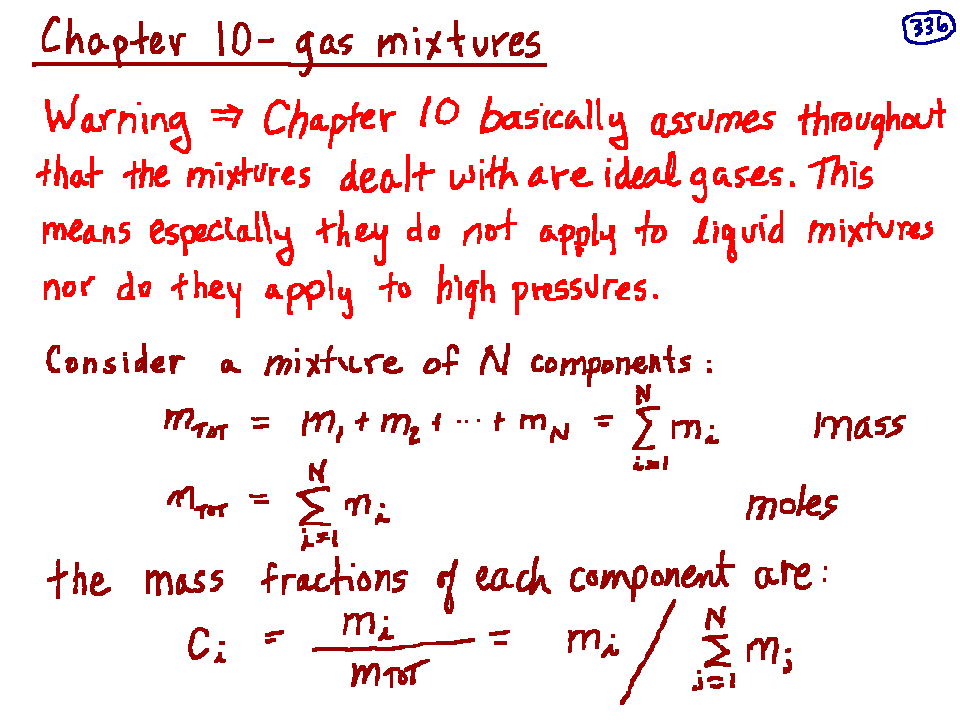 Chapter 10- gas mixtures
336
Warning ⇒ Chapter 10 basically assumes throughout
that the mixtures dealt with are ideal gases. This
means especially they do not apply to liquid mixtures
nor do they apply to high pressures.
Consider a mixture of N components:
m_TOT = m_1 + m_2 + ... + m_N = \sum_{i=1}^{N} m_i mass
n_TOT = \sum_{i=1}^{N} n_i moles
the mass fractions of each component are:
C_i = \frac{m_i}{m_TOT} = m_i / \sum_{j=1}^{N} m_j